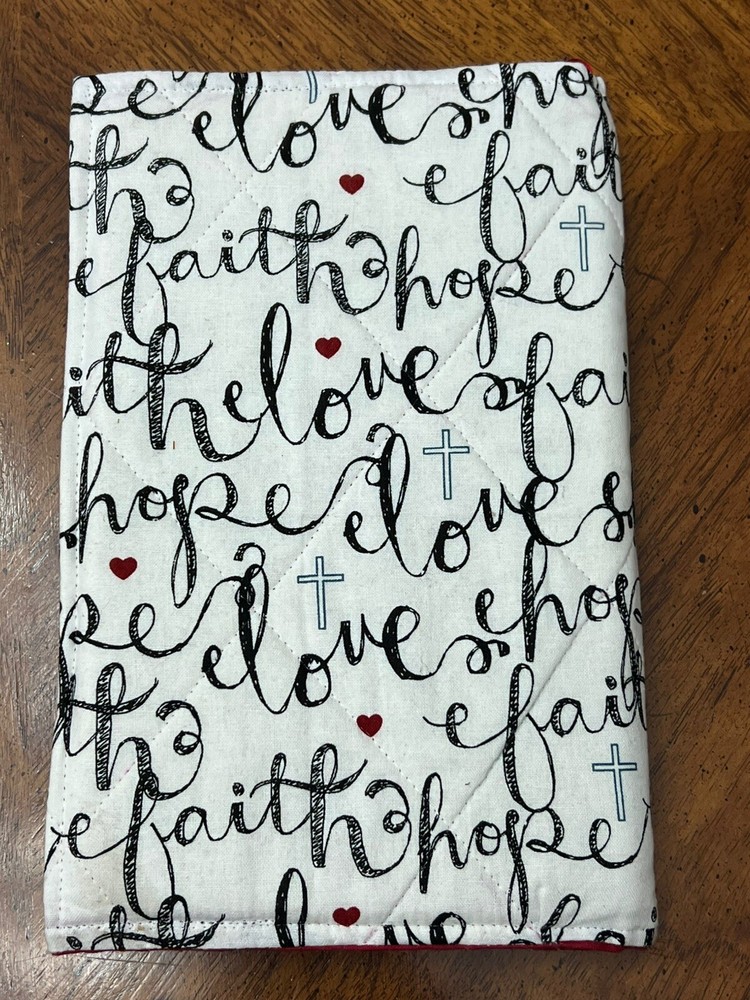 love hop
th fait
faith hope
ith love fai
hope love
pe love hop
th fait
faith hope
love